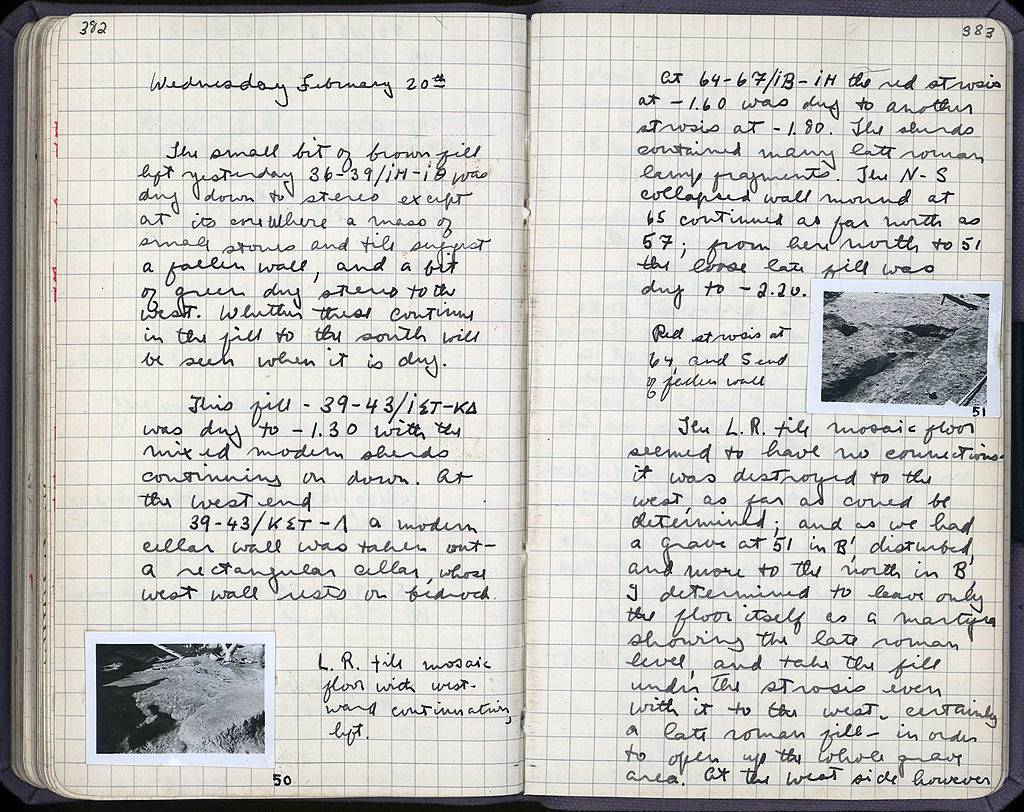 382
Wednesday February 20th
The small bit of brown fill
left yesterday 36-39/ΙΗ-ΙΘ was
dug down to stereo except
at its where a mass of
small stones and tile suggest
a fallen wall, and a bit
of green dug stereo to the
west. Whether these continue
in the fill to the south will
be seen when it is dug.
This fill - 39-43/ΙΣΤ-ΚΔ
was dug to -1.30 with the
mixed modern sherds
continuing on down. At
the west end
39-43/ΚΣΤ-Λ a modern
cellar wall was taken out-
a rectangular cellar, whose
west wall rests on bedrock.
L.R. tile mosaic
floor with west-
ward continuation
left.
50
383
At 64-67/ΙΒ-ΙΗ the red strosis
at -1.60 was dug to another
strosis at -1.80. The sherds
contained many late roman
lamp fragments. The N-S
collapsed wall mound at
65 continued as far north as
57; from here north to 51
the loose late fill was
dug to -2.20.
Red strosis at
64, and S end
of fallen wall
51
The L.R. tile mosaic floor
seemed to have no connections-
it was destroyed to the
west, as far as could be
determined; and as we had
a grave at 51 in Β', disturbed,
and more to the north in Β,
I determined to leave only
the floor itself as a martyra
showing the late roman
level, and take the fill
under the strosis even
with it to the west, certainly
a late roman fill - in order
to open up the whole grave
area. At the west side however